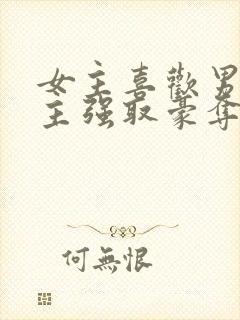 女主喜歡男
主强取豪奪
何無恨